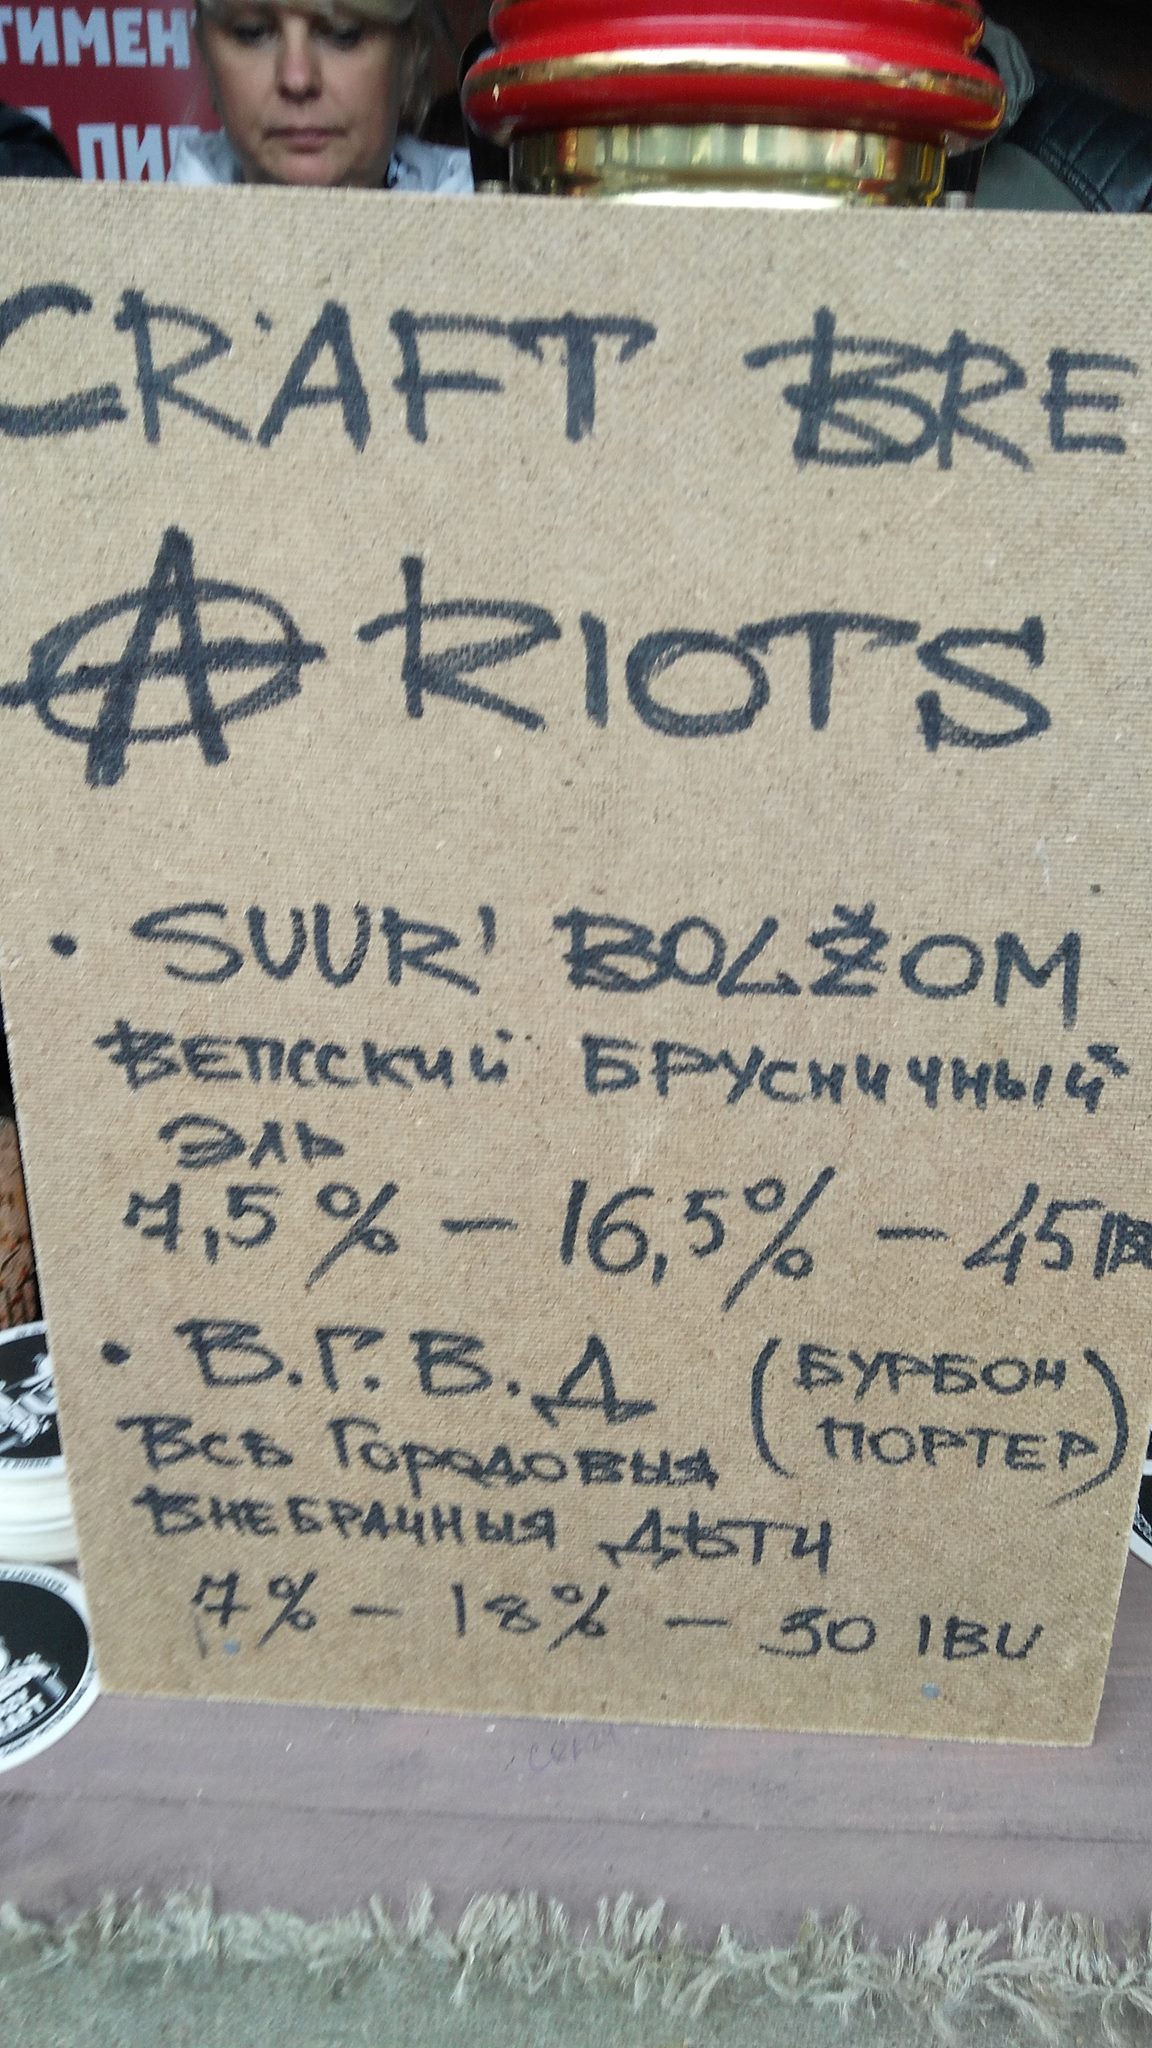 CRAFT BRE
A RIOTS
• SUUR' BOLŽOM
ВЕПССКИЙ БРУСНИЧНЫЙ
ЭЛЬ
7,5% — 16,5% — 45
• В.Г.В.Д (БУРБОН ПОРТЕР)
ВСѢ ГОРОДОВЫЯ
ВНЕБРАЧНЫЯ ДѢТИ
7% — 18% — 30 IBU